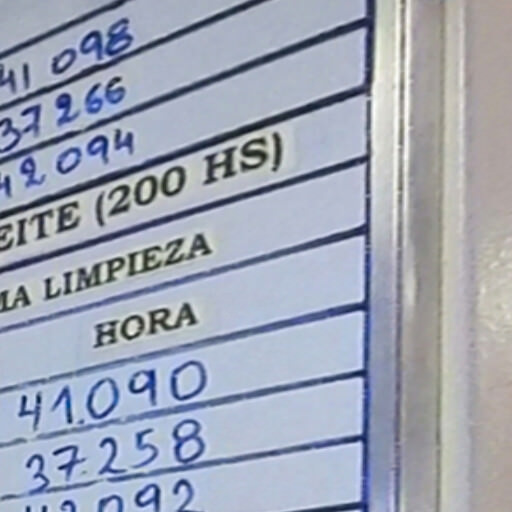 41 098
37 266
42 094
EITE (200 HS)
MA LIMPIEZA
HORA
41.090
37.258
42 092